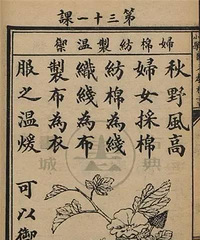 第三十一課
婦棉紡製温禦
秋野風高
婦女採棉
紡棉為綫
織綫為布
製布為衣
服之温煖
可以御